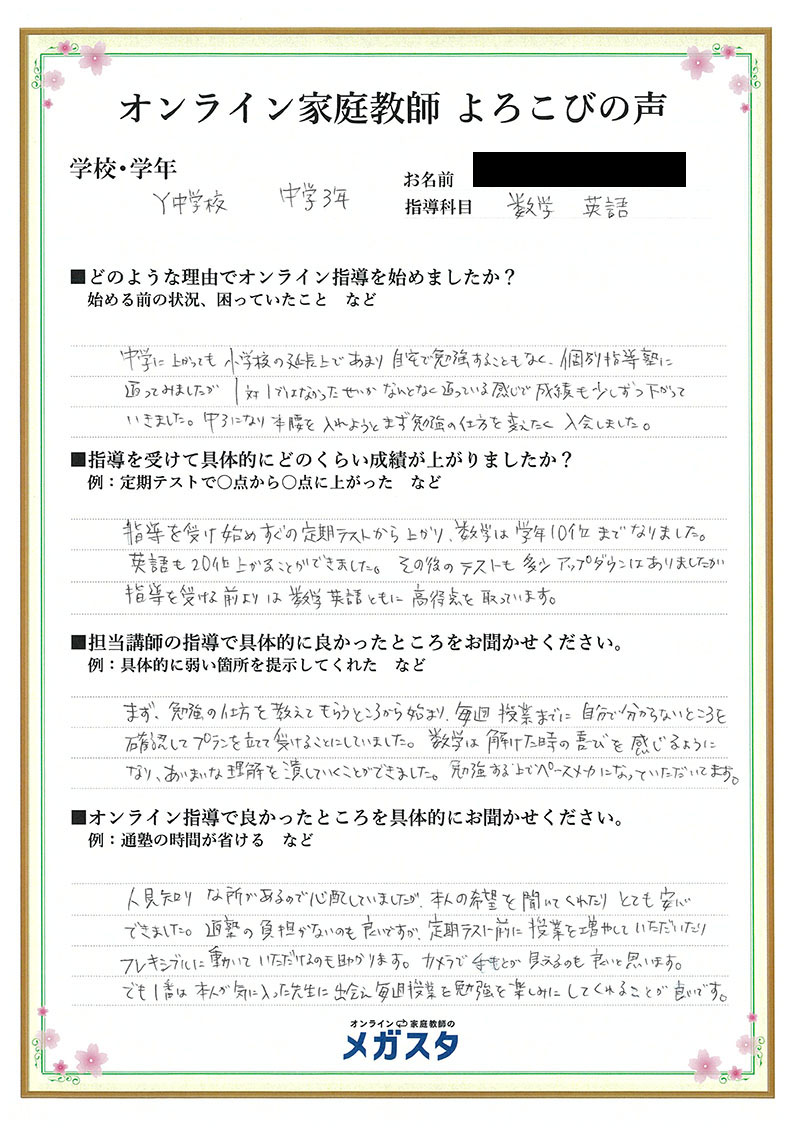 オンライン家庭教師 よろこびの声
学校・学年
お名前
Y中学校 中学3年
指導科目 数学 英語
■どのような理由でオンライン指導を始めましたか？
始める前の状況、困っていたこと など
中学に上がっても小学校の延長上であまり自宅で勉強することもなく、個別指導塾に
通ってみましたが1対1ではなかったせいかなんとなく通っている感じで成績も少しずつ下がって
いきました。中3になり本腰を入れようとまず勉強の仕方を変えたく入会しました。
■指導を受けて具体的にどのくらい成績が上がりましたか？
例：定期テストで〇点から〇点に上がった など
指導を受け始めすぐの定期テストから上がり、数学は学年10位までなりました。
英語も20位上がることができました。その後のテストも多少アップダウンはありましたが
指導を受ける前よりは数学英語ともに高得点を取っています。
■担当講師の指導で具体的に良かったところをお聞かせください。
例：具体的に弱い箇所を提示してくれた など
まず、勉強の仕方を教えてもらうところから始まり、毎週授業までに自分で分からないところを
確認してプランを立て受けることにしていました。数学は解けた時の喜びを感じるように
なり、あいまいな理解を潰していくことができました。勉強する上でペースメーカになっていただいてます。
■オンライン指導で良かったところを具体的にお聞かせください。
例：通塾の時間が省ける など
人見知りな所があるので心配していましたが、本人の希望を聞いてくれたりとても安心
できました。通塾の負担がないのも良いですが、定期テスト前に授業を増やしていただいたり
フレキシブルに動いていただけるのも助かります。カメラで手もとが見えるのも良いと思います。
でも1番は本人が気に入った先生に出会え毎週授業を勉強を楽しみにしてくれることが良いです。
オンライン家庭教師の
メガスタ